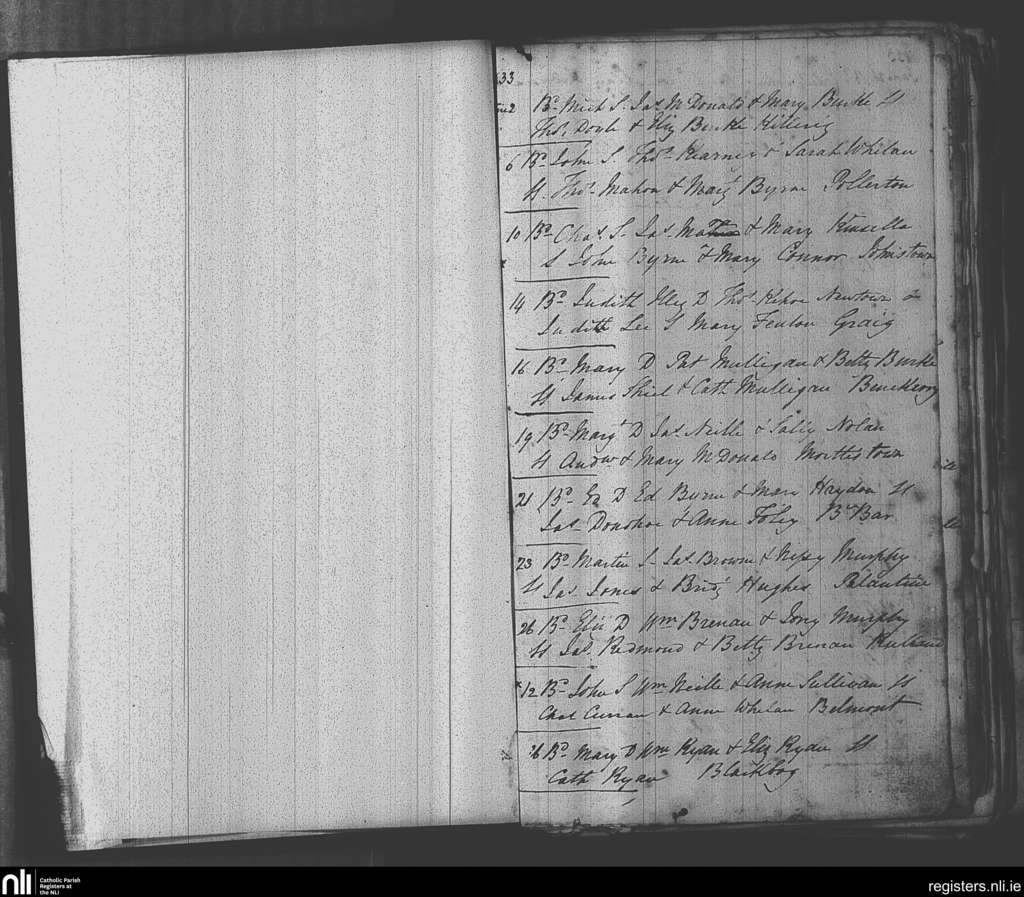 33
2 Bd. Mich S. Jas McDonald & Mary Burke St
Thos. Doyle & Eliz Burke
6 Bd. John S. Thos. & Sarah Whelan
St. Thos. Mahon & Marg Byrne Pollerton
10 Bd. Chas. S. Jas. & Mary Kinsella
S John Byrne & Mary Connor Johnstown
14 Bd. Judith D Thos. Kehoe Newtown &
Judith Lee S Mary Fenlon Graig
16 Bd. Mary D Pat Mulligan & Betty Burke
St James Shiel & Cath Mulligan
19 Bd. Margt D Jas. Neille & Sally Nolan
St Andw & Mary McDonald
21 Bd. D Ed Byrne & Mary Haydon St
Jas. Donohoe & Anne Foley Bar
23 Bd. Martin S. Jas. Browne & Murphy
St Jas Jones & Bridg Hughes Palantine
26 Bd. Eliz D Wm Brenan & Murphy
St Jas. Redmond & Betty Brenan
12 Bd. John S Wm Neille & Anne Sullivan St
Chas Curran & Anne Whelan Belmont
26 Bd. Mary D Wm Ryan & Eliz Ryan St
Cath Ryan Blackbog
nli
Catholic Parish
Registers at
the NLI
registers.nli.ie